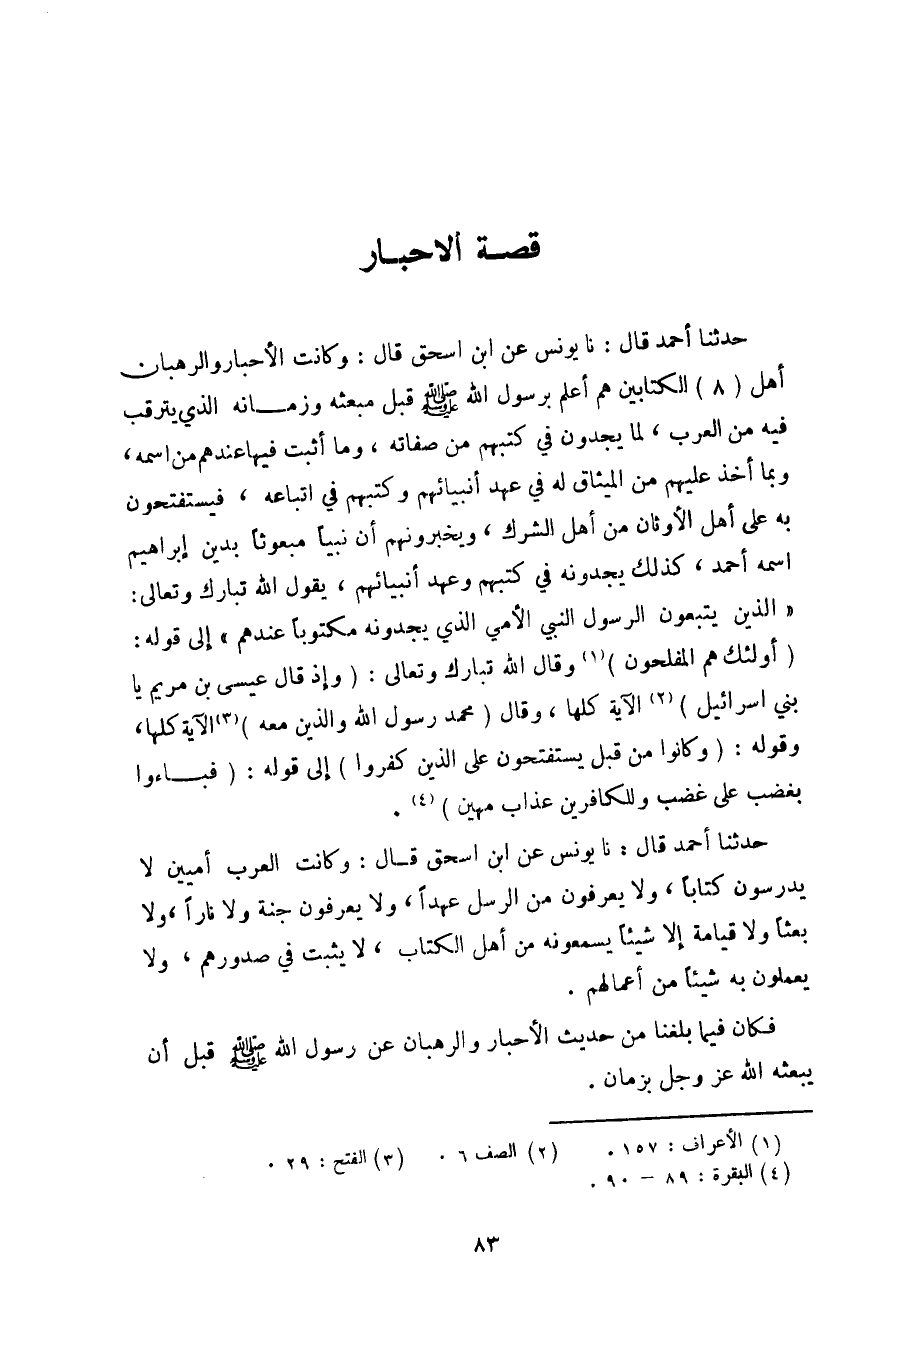 قصـة الاحبـار
حدثنا أحمد قال : نا يونس عن ابن اسحق قال : وكانت الأحبار والرهبان
أهل ( ٨ ) الكتابين هم أعلم برسول الله ﷺ قبل مبعثه وزمـــانه الذي يترقب
فيه من العرب ، لما يجدون في كتبهم من صفاته ، وما أثبت فيها عندهم من اسمه ،
وبما أخذ عليهم من الميثاق له في عهد أنبيائهم وكتبهم في اتباعه ، فيستفتحون
به على أهل الأوثان من أهل الشرك ، ويخبرونهم أن نبياً مبعوثاً بدين إبراهيم
اسمه أحمد ، كذلك يجدونه في كتبهم وعهد أنبيائهم ، يقول الله تبارك وتعالى :
« الذين يتبعون الرسول النبي الأمي الذي يجدونه مكتوباً عندهم » إلى قوله :
( أولئك هم المفلحون )(١) وقال الله تبارك وتعالى : ( وإذ قال عيسى بن مريم يا
بني اسرائيل )(٢) الآية كلها ، وقال ( محمد رسول الله والذين معه )(٣) الآية كلها ،
وقوله : ( وكانوا من قبل يستفتحون على الذين كفروا ) إلى قوله : ( فبـــاءوا
بغضب على غضب وللكافرين عذاب مهين )(٤) .
حدثنا أحمد قال : نا يونس عن ابن اسحق قـال : وكانت العرب أميين لا
يدرسون كتاباً ، ولا يعرفون من الرسل عهداً ، ولا يعرفون جنة ولا ناراً ، ولا
بعثاً ولا قيامة إلا شيئاً يسمعونه من أهل الكتاب ، لا يثبت في صدورهم ، ولا
يعملون به شيئاً من أعمالهم .
فكان فيما بلغنا من حديث الأحبار والرهبان عن رسول الله ﷺ قبل أن
يبعثه الله عز وجل بزمان .
(١) الأعراف : ١٥٧ . (٢) الصف ٦ . (٣) الفتح : ٢٩ .
(٤) البقرة : ٨٩ – ٩٠ .
٨٣